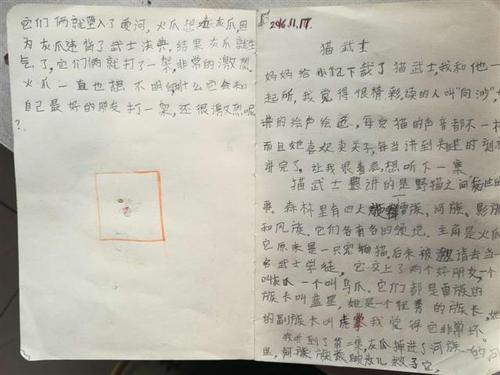 它们俩就坠入了爱河,火爪想灰爪,因
为灰爪违背了武士法典,结果灰爪就生
气了,它们俩就打了一架,非常的激烈。
火爪一直也想不什么它会和
自己最好的朋友打一架,还很激烈呢
?
2016.11.17.
猫武士
妈妈给小忆下载了猫武士,我和他一
起听,我觉得很精彩,读的人叫"向沙"
讲的绘声绘色,每只猫的声音都不一
而且她喜欢卖关子,每当讲到关键时刻
讲完了。让我很着急,想听下一集
猫武士讲的是野猫之间
事。森林里有四大族雷族、河族、影族
和风族。它们各有各的领地。主角是火爪
它原来是一只宠物猫,后来被邀请去当一
名武士学徒。它交上了两个好朋友,一个
叫灰爪一个叫乌爪。它们都是雷族的
族长叫蓝星,她是一个优秀的族长,她
的副族长叫虎掌我觉得它非常坏
我听到了第二集,灰爪掉进了河族的河
里,河族族长的女儿救了它,